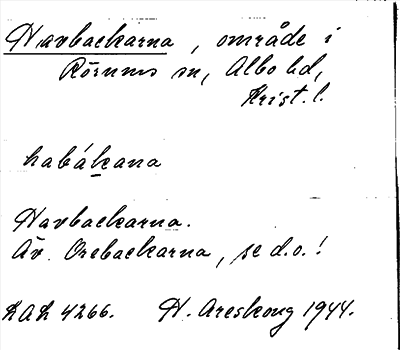 Havbackarna, område i
Rörums sn, Albo hd,
Krist. l.
habákana
Havbackarna.
Äv. Orebackarna, se d.o.!
KAH 4266. H. Areskoug 1944.